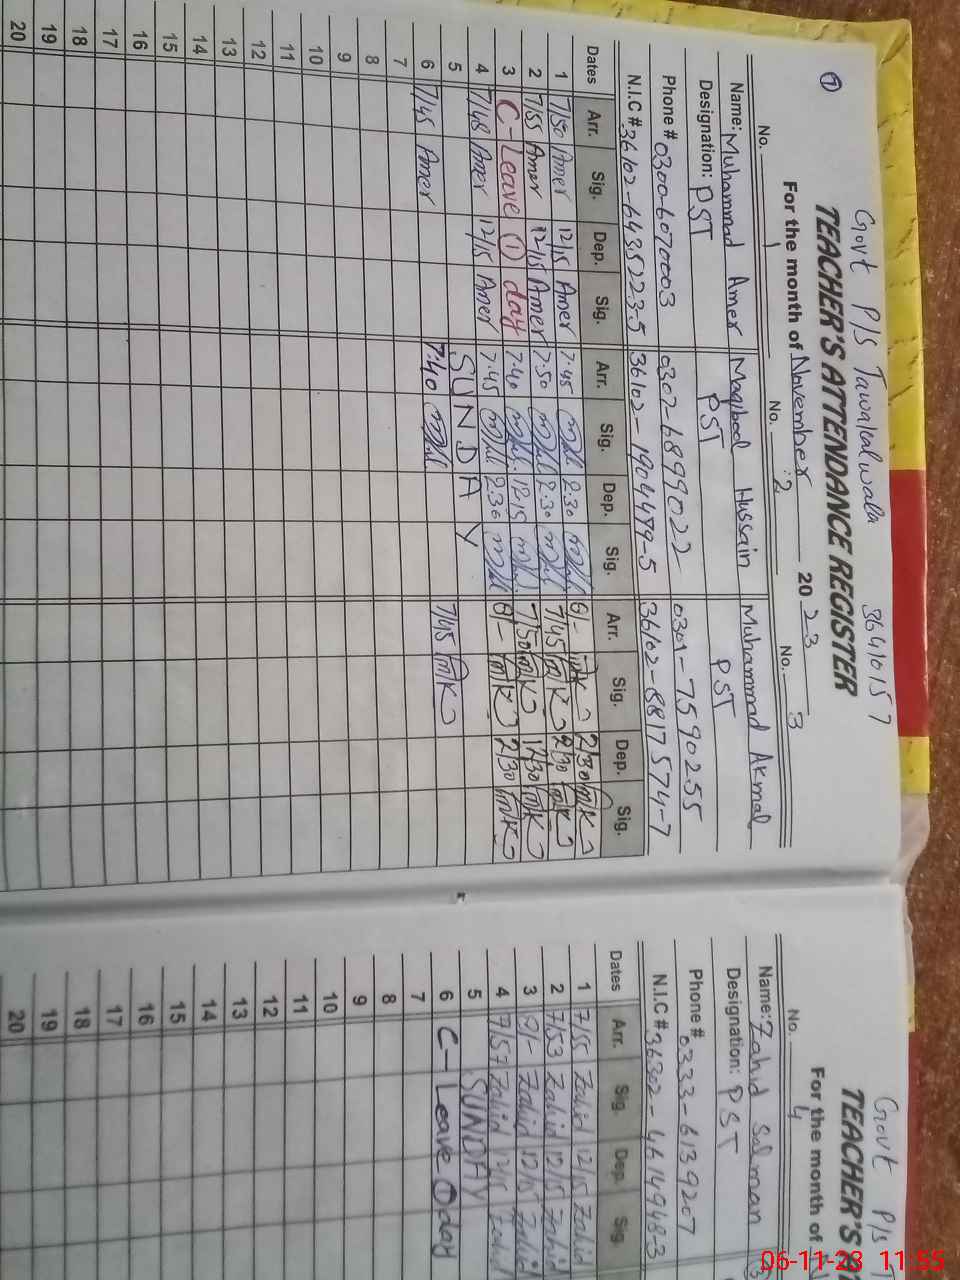 Govt P/S Tawakalwala 3641015 7
TEACHER'S ATTENDANCE REGISTER
For the month of November 20 23
1
No. 1 No. 2 No. 3
Name: Muhammad Amer Maqbool Hussain Muhammad Akmal
Designation: PST PST PST
Phone # 0300-6070003 0307-6899022 0301-7590255
N.I.C # 36102-6435223-5 36102-1904479-5 36102-8817574-7
Dates Arr. Sig. Dep. Sig. Arr. Sig. Dep. Sig. Arr. Sig. Dep. Sig.
1 7/50 Amer 12/15 Amer 7:45 2:30 8/- 2/30
2 7/55 Amer 12/15 Amer 7:50 2:30 7/45 2/30
3 C-Leave 1 day 7:40 12:15 7/50 12/30
4 7/48 Amer 12/15 Amer 7:45 2:30 8/- 2/30
5 SUNDAY
6 7/45 Amer 7:40 7/45
7
8
9
10
11
12
13
14
15
16
17
18
19
20
Govt P/S
TEACHER'S A
For the month of
No. 4
Name: Zahid Salman
Designation: PST
Phone # 0333-6139207
N.I.C # 36302-4614948-3
Dates Arr. Sig. Dep. Sig.
1 7/55 Zahid 12/15 Zahid
2 7/53 Zahid 12/15 Zahid
3 8/- Zahid 12/15 Zahid
4 7/57 Zahid 12/15 Zahid
5 SUNDAY
6 C-Leave 1 day
7
8
9
10
11
12
13
14
15
16
17
18
19
20
06-11-23 11:55